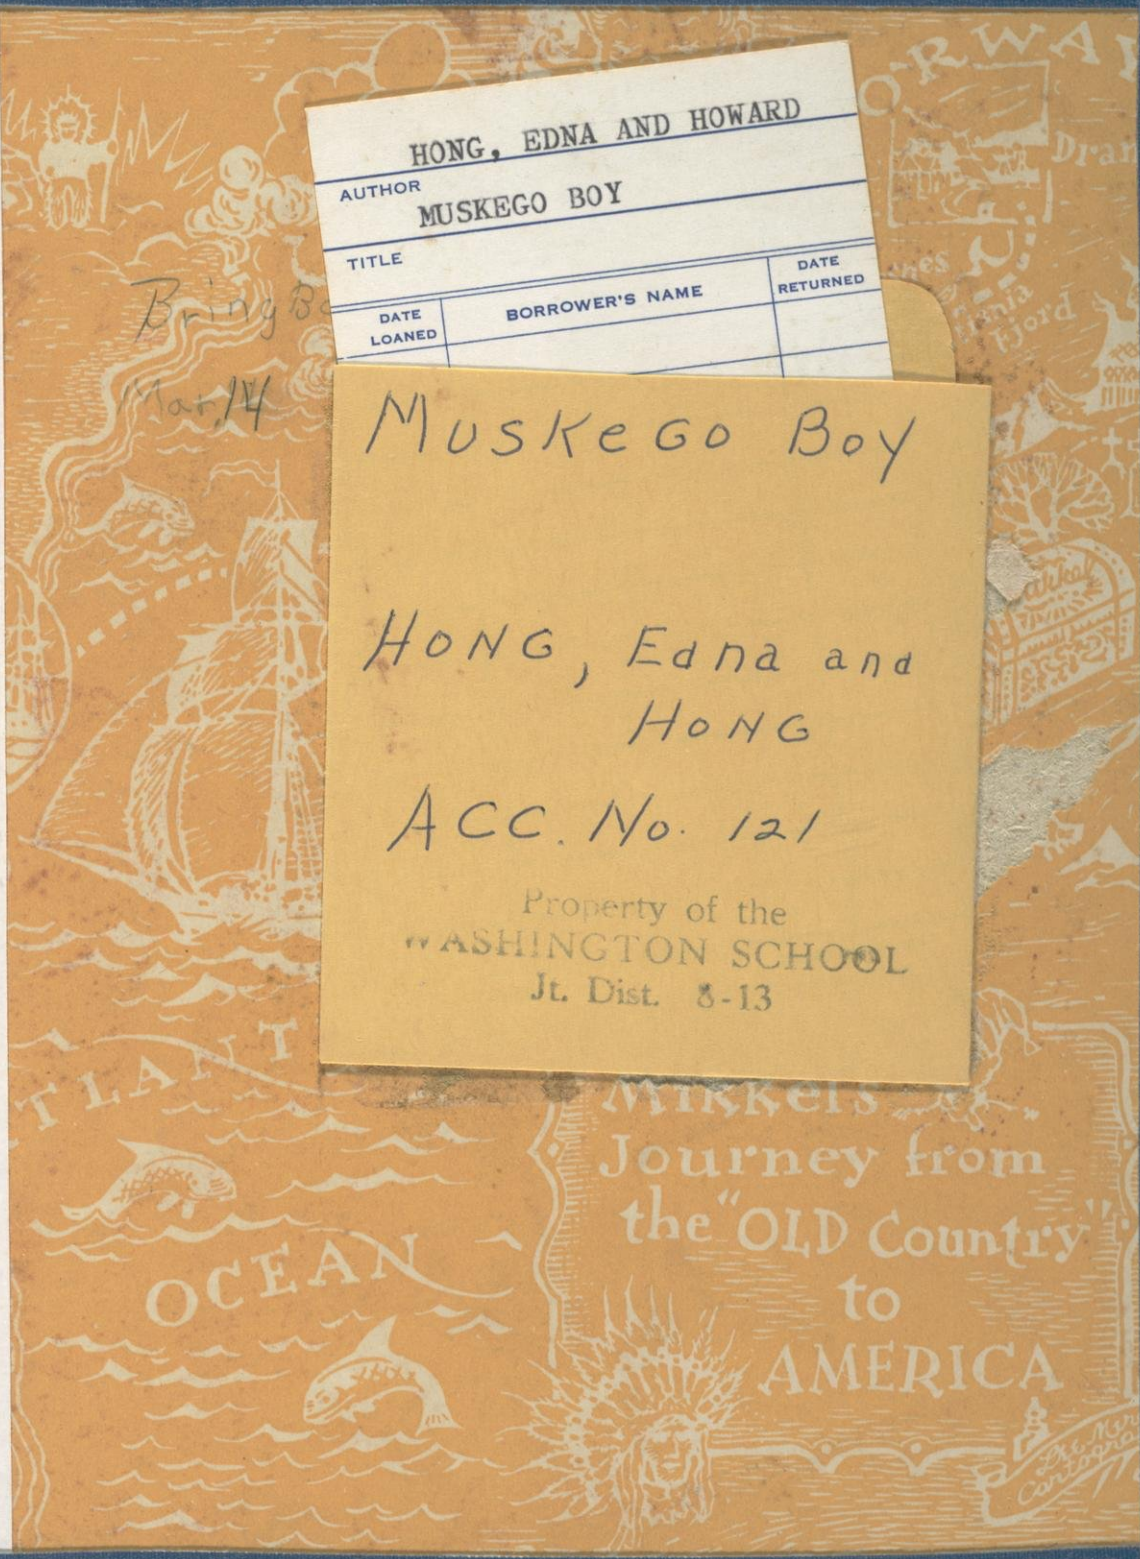 HONG, EDNA AND HOWARD
AUTHOR
MUSKEGO BOY
TITLE
DATE LOANED
BORROWER'S NAME
DATE RETURNED
Bring
Mar. 14
MUSKEGO BOY
HONG, Edna and
HONG
ACC. No. 121
Property of the
WASHINGTON SCHOOL
Jt. Dist. 8-13
ORWAY
Dram
fjord
TLANT
OCEAN
Mikkel's
Journey from
the "OLD Country"
to
AMERICA